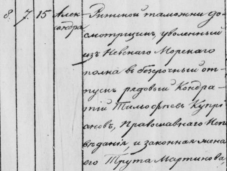 8. 7. 15 Александра Рижской таможни до-
смотрщик уволенный
изъ Невскаго Морскаго
полка въ безсрочный от-
пускъ рядовый Кондра-
тій Тимофеевъ Купрі-
ановъ, Православнаго Испо-
вѣданія, и законная жена
его Мартинова,